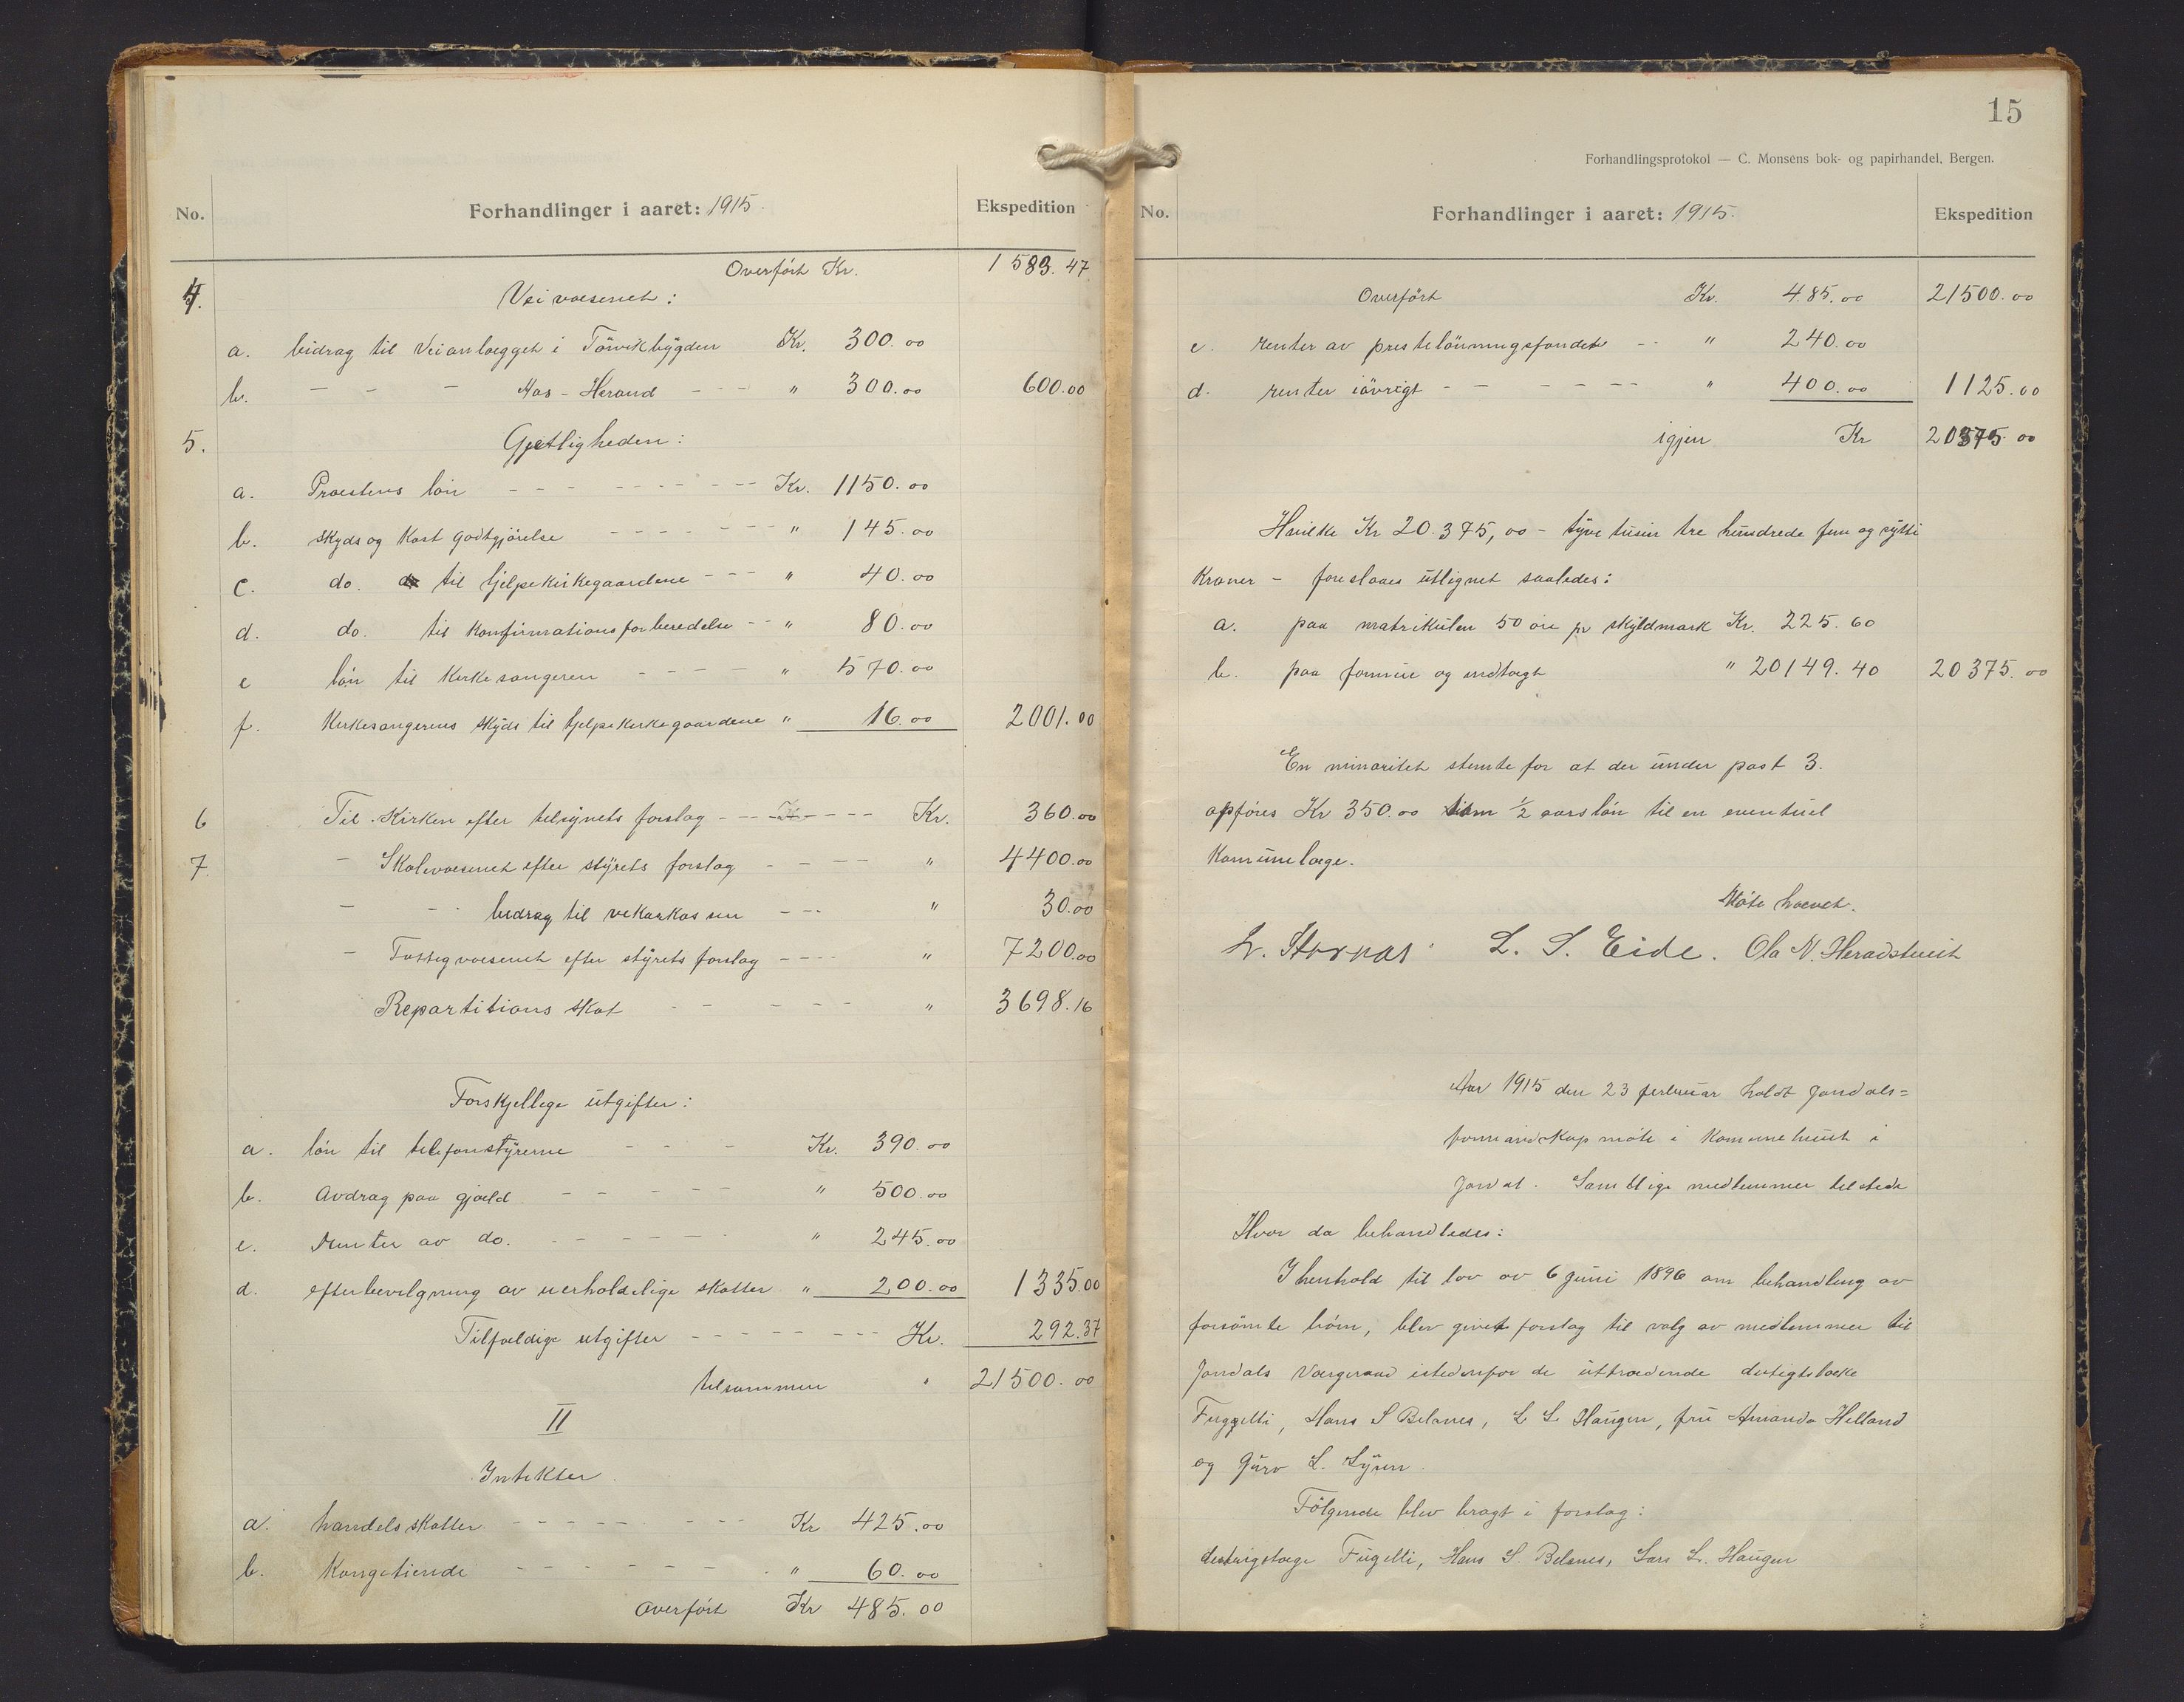 No. Forhandlinger i aaret: 1915. Ekspedition
Overført Kr. 1583.47
4. Veivæsenet:
a. bidrag til Veianlægget i Tørvikbygden Kr. 300.00
b. — - - Aas - Herand - - - " 300.00 600.00
5. Gjetligheden:
a. Præstens løn - - - - - - - - - Kr. 1150.00
b. skyds og Kost godtgjørelse - - - - - - - " 145.00
c. do. til hjelpekirkegaardene - - - " 40.00
d. do. til Konfirmationsforberedelse - - " 80.00
e løn til Kirkesangeren - - - - - " 570.00
f. Kirkesangerens skyds til hjelpekirkegaardene " 16.00 2001.00
6 Til Kirken efter tilsynets forslag - - - - - - - Kr. 360.00
7. - Skolevæsenet efter styrets forslag - - - - " 4400.00
- - - bidrag til vekarkassen - - - " 30.00
- Fattigvæsenet efter styrets forslag - - - - " 7200.00
Repartitions skat - - - - - " 3698.16
Forskjellige utgifter:
a. løn til telefonstyrerne - - - Kr. 390.00
b. Avdrag paa gjæld - - - - - " 500.00
c. Renter av do. - - - - - - " 245.00
d. efterbevilgning av uerholdelige skatter " 200.00 1335.00
Tilfældige utgifter - - - - - - - - Kr. 292.37
tilsammen " 21500.00
II
Intekter
a. handelsskatter - - - - - - - - Kr 425.00
b. Kongetiende - - - - - - - " 60.00
Overført Kr 485.00
15
Forhandlingsprotokol — C. Monsens bok- og papirhandel, Bergen.
No. Forhandlinger i aaret: 1915. Ekspedition
Overført Kr. 485.00 21500.00
c. renter av prestelønningsfondet - - " 240.00
d. renter iøvrigt - - - - - - " 400.00 1125.00
igjen Kr 20375.00
Hvilke Kr 20.375,00 - tyve tusin tre hundrede fem og sytti
Kroner - foreslaaes utlignet saaledes:
a. paa matrikulen 50 øre pr skyldmark Kr. 225.60
b. paa formue og indtægt " 20149.40 20375.00
En minoritet stemte for at der under post 3.
opføres Kr 350.00 som ½ aarsløn til en eventuel
Komunelæge.
Møte hævet.
L. S. Eide. Ola N. Heradstveit
Aar 1915 den 23 februar holdt Jondals=
formandskap møte i Komunehuset i
Jondal. Samtlige medlemmer tilstede
Hvor da behandledes:
I henhold til lov av 6 juni 1896 om behandling av
forsømte børn, blev givet forslag til valg av medlemmer til
Jondals Værgeraad istedenfor de uttrædende distigtslæke
Fuggelli, Hans S Belsnes, L L Haugen, fru Amanda Helland
og Guro L. Lyren.
Følgende blev bragt i forslag:
destrigtslæge Fugelli, Hans S. Belsnes, Lars L. Haugen